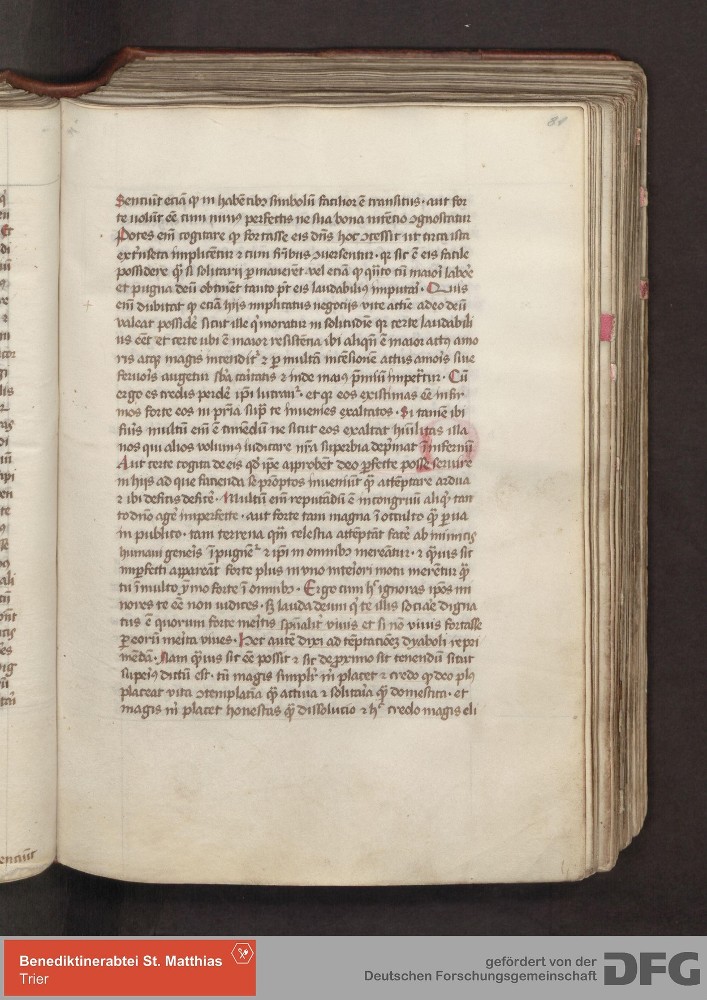 81
Sentiūt etiā ꝙ in habētibꝫ simbolū facilior ē transitus · aut for
te nolūt eē cum minus perfectis ne sua bona intētio ꝯgnoscatur
Potes em̄ cogitare ꝙ fortasse eis dn̄s hoc ꝯcessit ut circa ista
possidere qͣ si solitarij ꝑmanerēt · vel etiā ꝙ
et pugna deū obtinēt tanto laudabiliꝰ imputaī · Quis
em̄ dubitat ꝙ etiā hijs implicatus negocijs vite actīe adeo deū
valeat sicut ille qͥ moratur in solitudīe qꝛ certe laudabili
us eēt et certe ubi ē maior resistētia ibi aliqn̄ ē maior actꝰ amo
ris atqꝫ magis intendit᷑ ⁊ ꝑ multā intēsionē actus amoīs siue
feruoīs augetur caritatis ⁊ inde maiꝰ p̄miū · Cū
ergo eos credis perdē ip̄i lucran᷑ · et qꝛ eos existimas eē infir
mos forte eos in pr̄ia sup̄ te inuenies exaltatos · Si tamē ibi
fuīs multū em̄ ē timēdū ne sicut eos exaltat hūilitas illa
nos qui alios volumꝰ iudicare nr̄a superbia dep̄mat ī infernū
Aut certe cogita de eis qͦd ip̄e approbēt deo ꝑfecte posse seruire
in hijs ad que facienda se p̄mptos inueniūt qͣꝫ attēptare ardua
⁊ ibi deficīs deficē · Multū em̄ reputādū ē incongruū aliqͣ tan
to dn̄o agē imperfecte · aut forte tam magna ī occulto qͣꝫ ꝑua
in publico · tam terrena celestia attēptāt facē ab inimicis
humani geneīs īpugnēt᷑ ⁊ ip̄i in omnibꝫ mereātur · ⁊ qͣuis sic
imꝑfecti appareāt forte plus in vno inteīori motu merētur qͣꝫ
tu ī multo ymo forte ī omnibꝫ · Ergo cum h̄ ignoras ip̄os mi
nores te eē non iudices · sꝫ lauda deum qͥ te illis sociaē digna
tus ē quorum forte meītis sp̄ualit᷑ viuis et si nō viuis fortasse
ꝑ eorū meīta viues · Hec autē dixi ad tēptatiōeꝫ dyaboli repri
mēdā · Nam qͣuis sic eē possit ⁊ sic de proximo sit tenendū sicut
supeīꝰ dictū est · tn̄ magis simplr̄ m̄ placet ⁊ credo ꝙ deo plꝰ
placeat vita ꝯtemplatīa qͣꝫ actiua ⁊ solitaīa qͣꝫ domestica · et
magis m̄ placet honestas qͣꝫ dissolucio ⁊ h̄ credo magis eli
Benediktinerabtei St. Matthias
Trier
gefördert von der
Deutschen Forschungsgemeinschaft
DFG